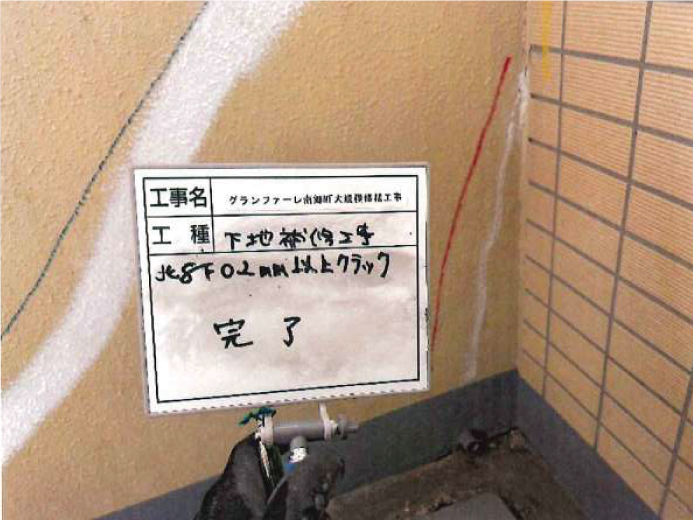 工事名 グランファーレ南郷町大規模修繕工事
工種 下地補修工事
北8F 0.2mm以上クラック
完了